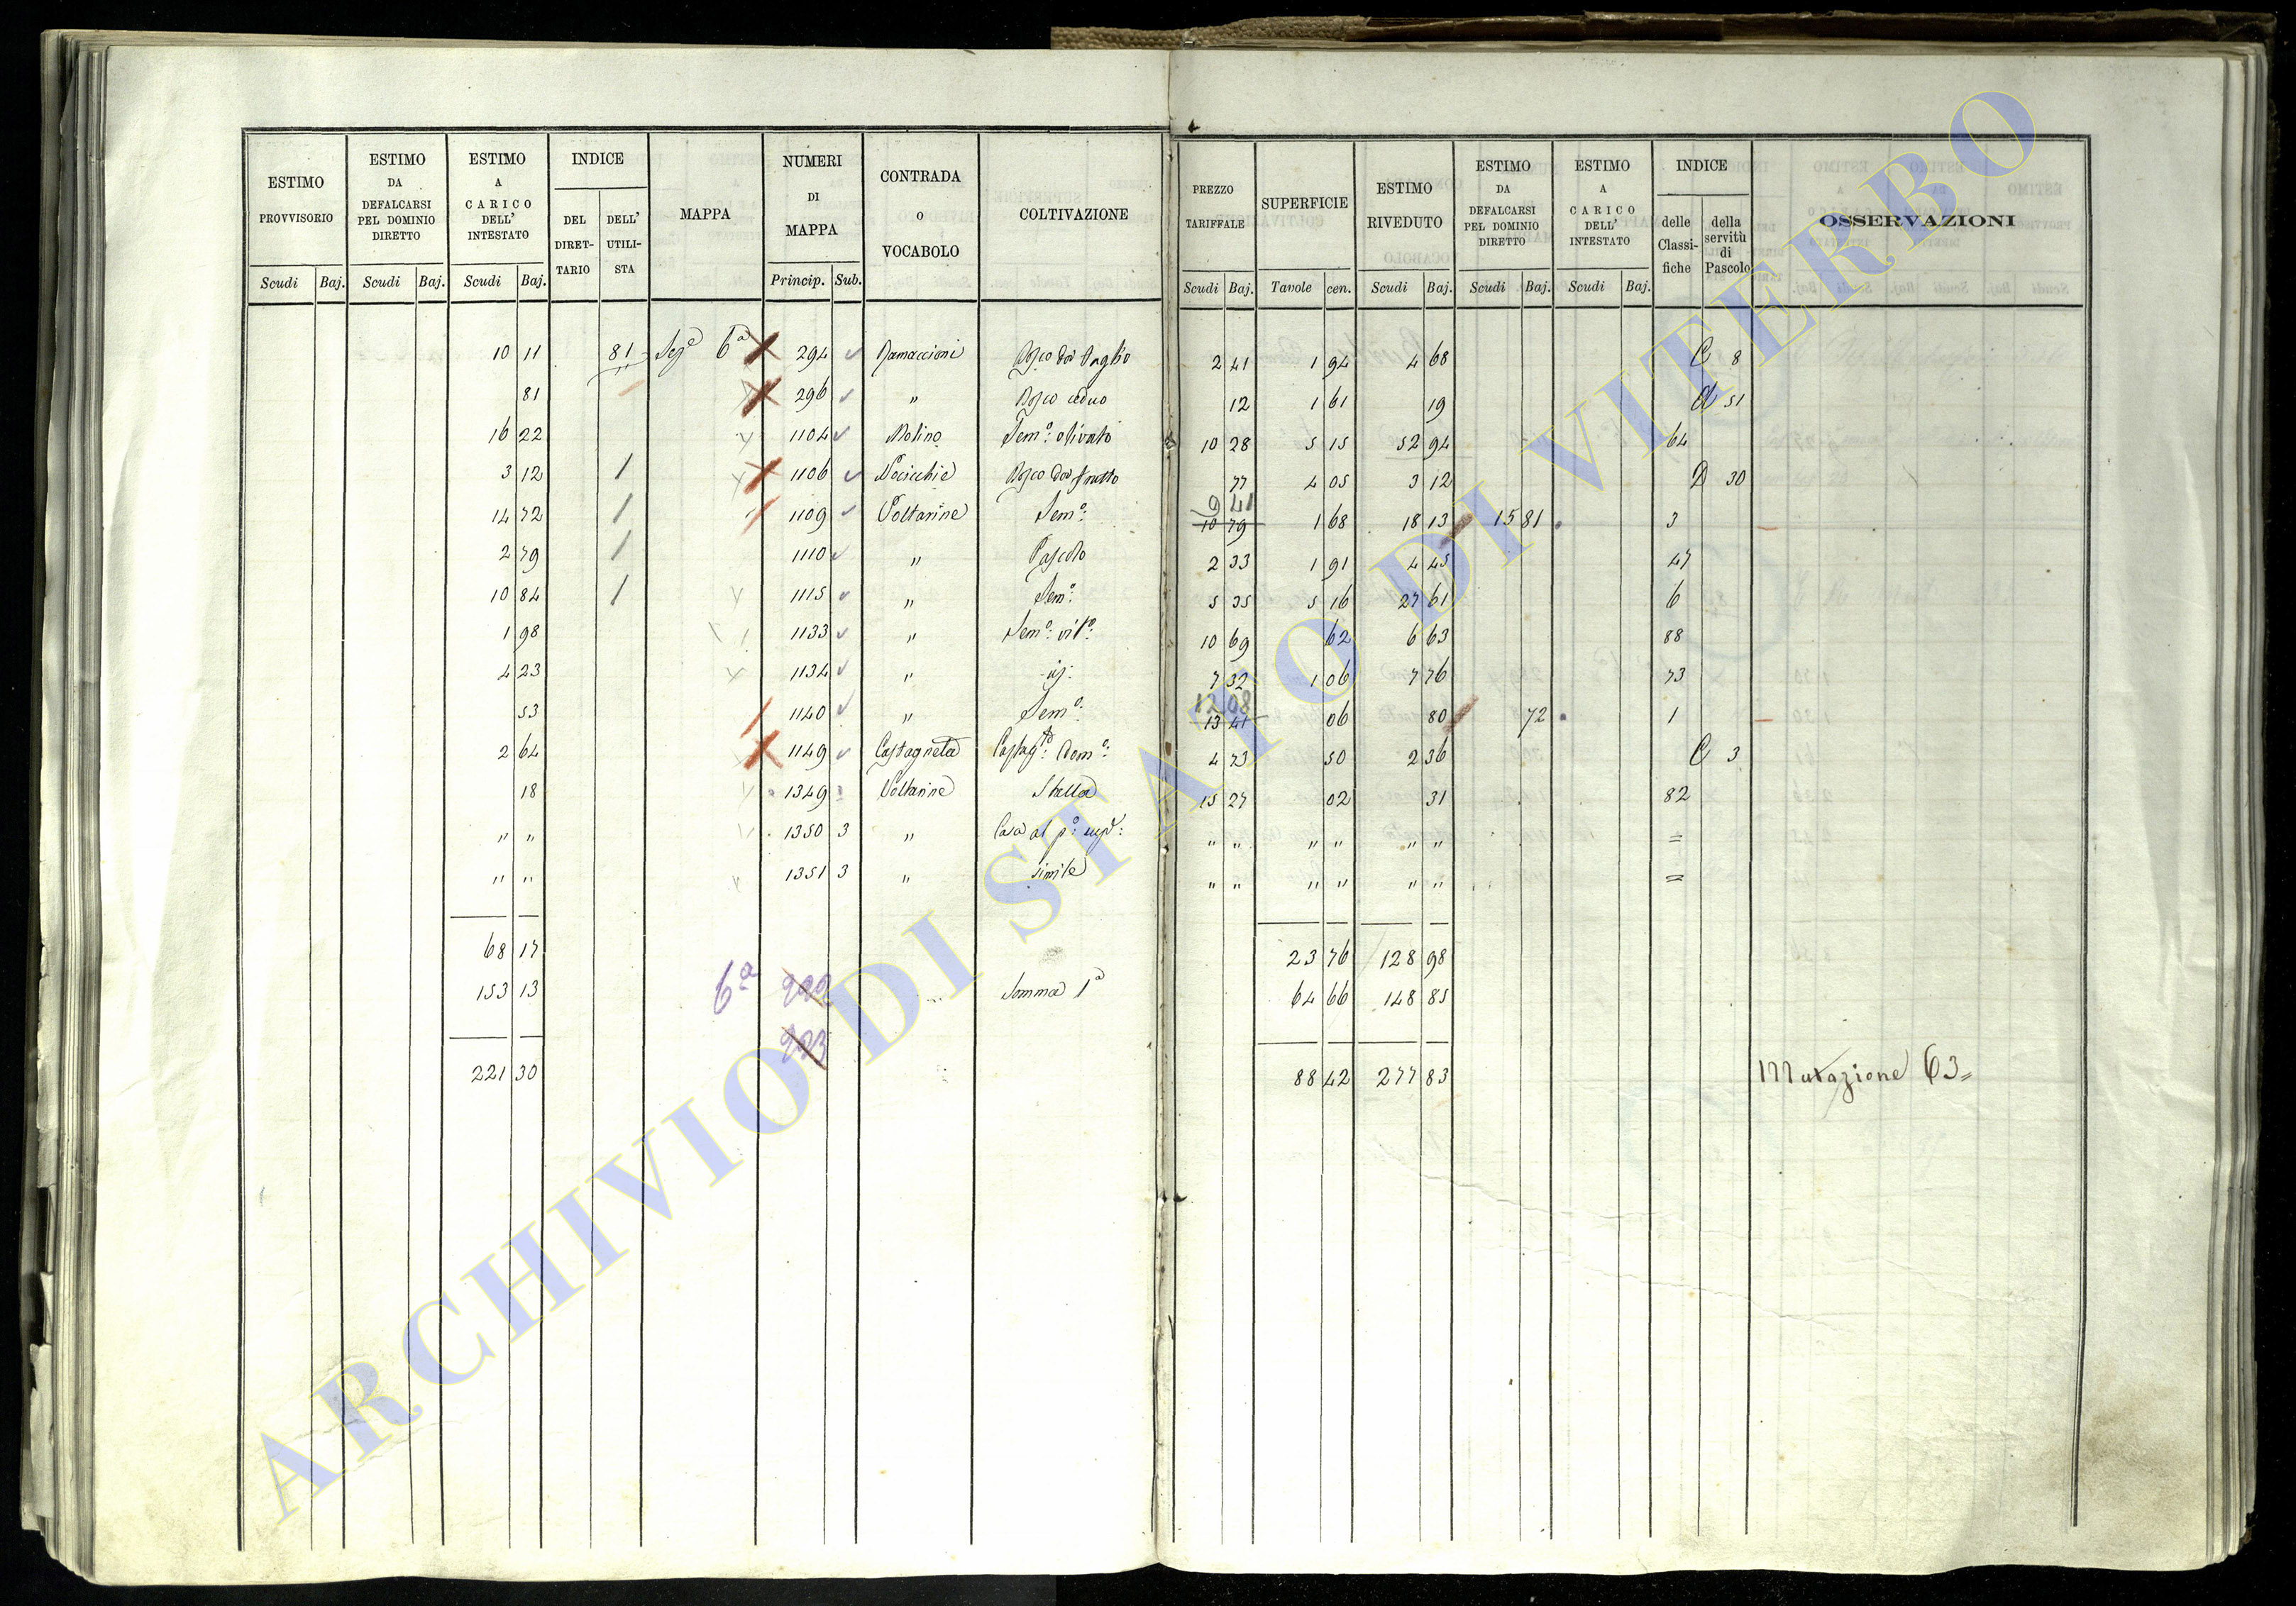 ESTIMO PROVVISORIO | ESTIMO DA DEFALCARSI PEL DOMINIO DIRETTO | ESTIMO A CARICO DELL' INTESTATO | INDICE DEL DIRET-TARIO | DELL' UTILI-STA | MAPPA | NUMERI DI MAPPA | CONTRADA O VOCABOLO | COLTIVAZIONE | PREZZO TARIFFALE | SUPERFICIE | ESTIMO RIVEDUTO | ESTIMO DA DEFALCARSI PEL DOMINIO DIRETTO | ESTIMO A CARICO DELL' INTESTATO | INDICE delle Classi-fiche | della servitù di Pascolo | OSSERVAZIONI
Scudi Baj. Scudi Baj. Scudi Baj. Princip. Sub. Scudi Baj. Tavole cen. Scudi Baj. Scudi Baj. Scudi Baj.
10 11 81 Sezᵉ 6ª 294 Ramaccioni Bosco da taglio 2 41 1 94 4 68 C 8
81 296 " Bosco ceduo 12 1 61 19 51
16 22 1104 Molino Semº: olivato 10 28 5 15 52 94 64
3 12 1 1106 Bosco da frutto 77 4 05 3 12 D 30
9 41
14 72 1 1109 Voltarine Semº: 10 79 1 68 18 13 15 81 3
2 79 1 1110 " Pascolo 2 33 1 91 4 45 47
10 84 1 1115 " Semº: 5 35 5 16 27 61 6
1 98 1133 " Semº: vitº: 10 69 62 6 63 88
4 23 1134 " 7 32 1 06 7 76 73
12 08
53 1140 " Semº: 13 41 06 80 72 1
2 64 1149 Castagneta Castagᵗᵒ: Domº: 4 73 50 2 36 C 3
18 1349 Voltarine Stalla 15 27 02 31 82
" " 1350 3 " Casa al pº: supʳ: " " " " " " =
" " 1351 3 " simile " " " " " " =
68 17 23 76 128 98
153 13 6ª 222 Somma 1ª 64 66 148 85
223
221 30 88 42 277 83 Mutazione 63=
ARCHIVIO DI STATO DI VITERBO